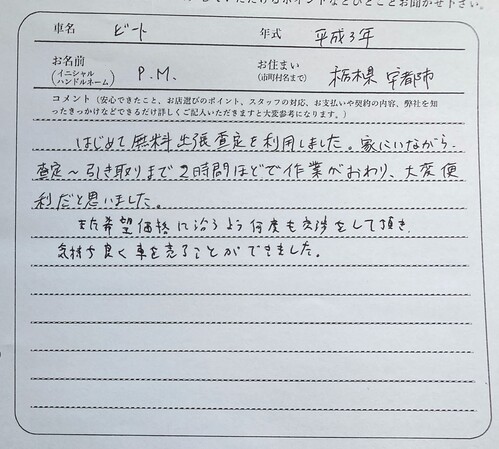 していただけるポイントなどひとことお聞かせ下さい。
車名 ビート 年式 平成3年
お名前 (イニシャル ハンドルネーム) P.M. お住まい (市町村名まで) 栃木県 宇都宮市
コメント(安心できたこと、お店選びのポイント、スタッフの対応、お支払いや契約の内容、弊社を知
ったきっかけなどできるだけ詳しくご記入いただきますと大変参考になります。)
はじめて無料出張査定を利用しました。家にいながら、
査定〜引き取りまで2時間ほどで作業がおわり、大変便
利だと思いました。
また希望価格に沿うよう何度も交渉をして頂き、
気持ち良く車を売ることができました。